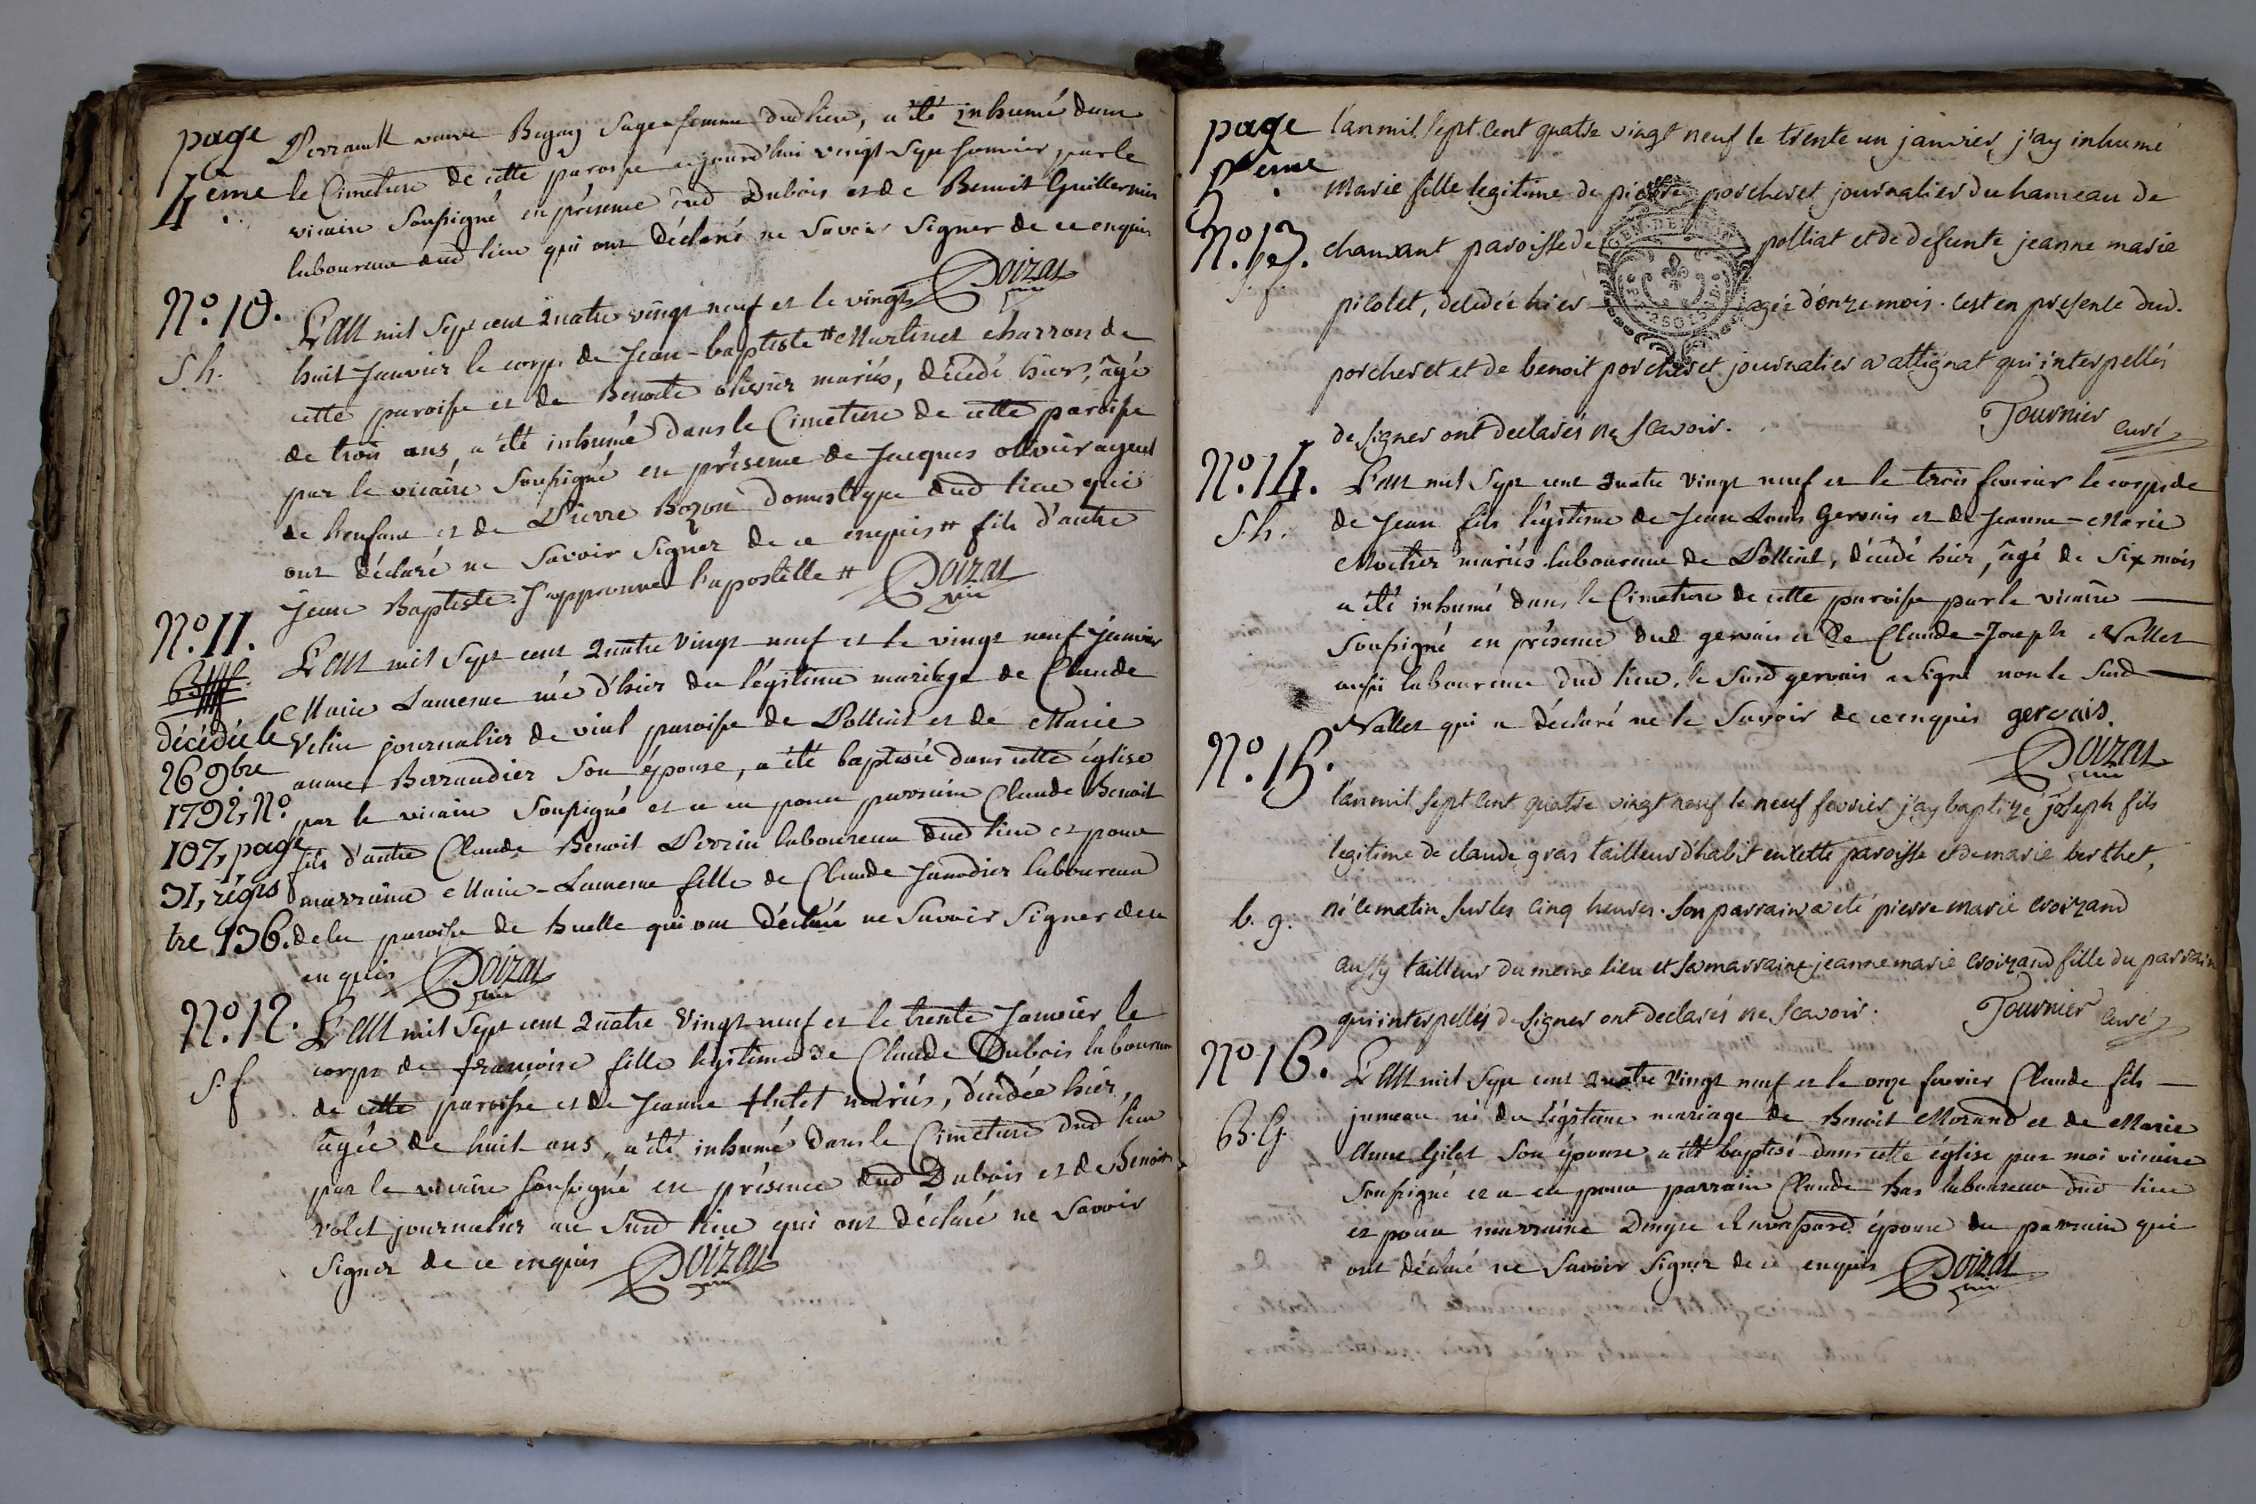 page
4ème
Perrault veuve Bugay Sage-femme dud lieu, a été inhumé dans
le Cimetiere de cette paroisse aujourd'hui vingt-sept Janvier par le
vicaire Soussigné en présence dud Dubois et de Benoit Guillermin
laboureur dud lieu qui ont déclaré ne savoir signer de ce enquis
Doizat
vic
N.o 10.
S. h.
L'an mil sept cent quatre vingt neuf et le vingt
huit Janvier le corps de Jean-baptiste # Martinet charron de
cette paroisse et de Benoite olivier mariés, décédé hier, âgé
de trois ans, a été inhumé dans le Cimetiere de cette paroisse
par le vicaire Soussigné en présence de Jacques olivier ayeul
de l'enfant et de Pierre Bozon domestique dud lieu qui
ont déclaré ne savoir signer de ce enquis # fils d'autre
Jean Baptiste. J'approuve l'apostille # Doizat
vic
N.o 11.
décédée le
26 9bre
1792, N.o
107, page
31, regis
tre 136.
L'an mil sept cent quatre vingt neuf et le vingt neuf Janvier
Marie Laurence née d'hier du légitime mariage de Claude
Velin journalier de vial paroisse de Polliat et de Marie
anne Berraudier son épouse, a été baptisée dans cette église
par le vicaire Soussigné et a eu pour parrain Claude Benoit
fils d'autre Claude Benoit Perrin laboureur dud lieu et pour
marraine Marie-Laurence fille de Claude Janodier laboureur
de la paroisse de buelle qui ont déclaré ne savoir signer de ce
enquis Doizat
vic
N.o 12.
S. f
L'an mil sept cent quatre vingt neuf et le trente Janvier le
corps de françoise fille légitime de Claude Dubois laboureur
de cette paroisse et de Jeanne hutet mariés, décédée hier,
âgée de huit ans, a été inhumé dans le Cimetiere dud lieu
par le vicaire soussigné en présence dud Dubois et de benoit
volet journalier au susd lieu qui ont déclaré ne savoir
signer de ce enquis Doizat
vic
page
5ème
N.o 13.
S. f.
l'an mil sept cent quatre vingt neuf le trente un janvier, j'ay inhumé
marie fille legitime de pierre porcheret journalier du hameau de
chanvant paroisse de polliat et de defunte jeanne marie
pilotet, decedée hier agée d'onze mois. c'est en presence dud.
porcheret et de benoit porcheret journalier a attignat qui interpellés
de signer ont declarés ne scavoir. Tournier curé
N.o 14.
S. h.
L'an mil sept cent quatre vingt neuf et le trois fevrier le corps de
de Jean fils légitime de Jean Louis Gervais et de Jeanne-Marie
Mochier mariés laboureur de Polliat, décédé hier, âgé de six mois
a été inhumé dans le Cimetiere de cette paroisse par le vicaire
Soussigné en présence dud gervais et de Claude-Joseph Vallet
aussi laboureur dud lieu, le susd gervais a signé non le susd
Vallet qui a déclaré ne le savoir de ce enquis gervais.
Doizat
vic
N.o 15.
b. g.
l'an mil sept cent quatre vingt neuf le neuf fevrier, j'ay baptizé joseph fils
legitime de claude gras tailleur d'habit en cette paroisse et de marie berthet,
né ce matin sur les cinq heures. son parrain a eté pierre marie croizand
aussy tailleur du meme lieu et sa marraine jeanne marie croizand fille du parrain
qui interpellés de signer ont declarés ne scavoir. Tournier curé
N.o 16.
B. G.
L'an mil sept cent quatre vingt neuf et le onze fevrier Claude fils
jumeau né du légitime mariage de Benoit Morand et de Marie
Anne Gilet son épouse a été baptisé dans cette église par moi vicaire
soussigné et a eu pour parrain Claude bas laboureur dud lieu
et pour marraine épouse du parrain qui
ont déclaré ne savoir signer de ce enquis Doizat
vic